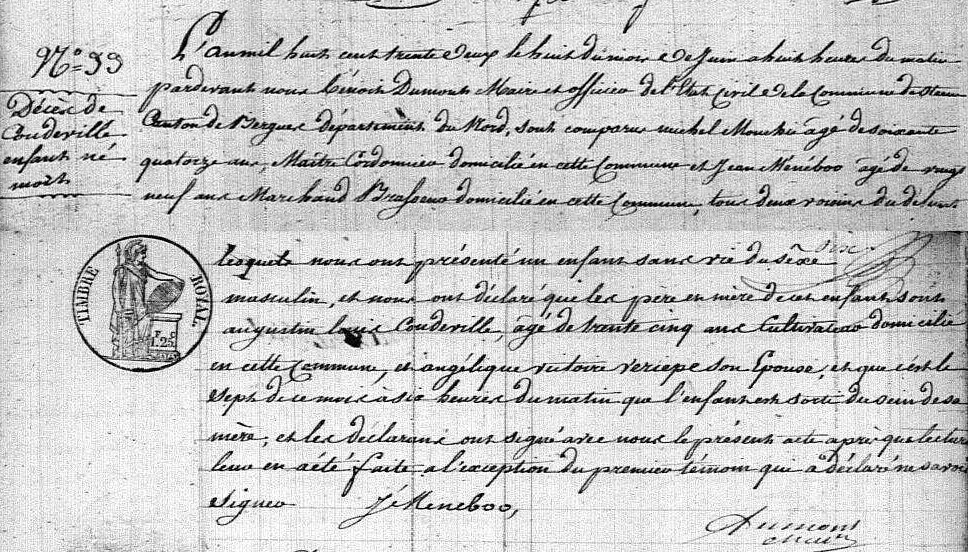 N.º 33
Décès de
Coudeville
enfant né
mort
L'an mil huit cent trente deux le huit du mois de Juin a huit heures du matin
pardevant nous Bénoit Dumont Maire et officier de l'Etat Civil de la Commune de Steene
Canton de Bergues département du Nord, sont comparus michel Mouchie âgé de soixante
quatorze ans, Maître Cordonnier domicilié en cette Commune et Jean Ménéboo âgé de vingt
neuf ans Marchand Brasseur domicilié en cette Commune, tous deux voisins du défunt
lesquels nous ont présenté un enfant sans vie du sexe
masculin, et nous ont déclaré que les père en mère de cet enfant sont
augustin louis Coudeville, âgé de trente cinq ans Cultivateur domicilié
en cette Commune, et angélique victoire veriepe son Epouse, et que c'est le
Sept de ce mois a six heures du matin que l'enfant est sorti du sein de sa
mère, et les déclarans ont signé avec nous le présent acte après que lecture
leur en a été faite a l'exception du premier témoin qui a déclaré ne savoir
signer J Meneboo,
Dumont
maire
TIMBRE ROYAL.
1.25